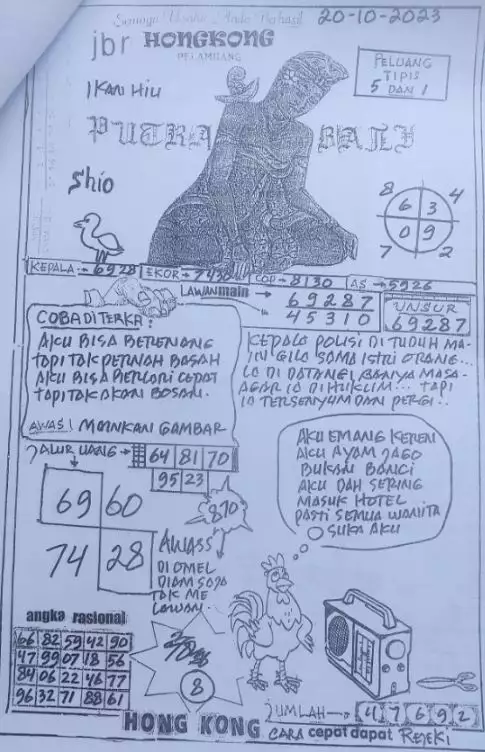 Semoga Usaha Anda Berhasil
20-10-2023
jbr HONGKONG
PELAMUANG
PELUANG
TIPIS
5 DAN 1
IKAN HIU
PUTRA BALI
Shio
8 4
6 3
0 9
7 2
KEPALA → 6928 EKOR → 7430 COP → 8130 AS → 5926
LAWANmain → 69287
45310
UNSUR
69287
COBA DITERKA:
AKU BISA BERENANG
TAPI TAK PERNAH BASAH
AKU BISA BERLARI CEPAT
TAPI TAK AKAN BOSAN.
AWAS! MAINKAN GAMBAR
KEPALA POLISI DI TUDUH MA-
IN GILA SAMA ISTRI ORANG...
IO DI DATANGI BANYA MASA-
AGAR IO DI HUKUM... TAPI
IO TERSENYUM DAN PERGI..
JALUR UANG → 64 81 70
95 23
69 60
74 28
870
AWASS
DI OMEL
DIAM SAJA
TAK ME
LAWAN..
AKU EMANG KEREN
AKU AYAM JAGO
BUKAN BANCI
AKU DAH SERING
MASUK HOTEL
PASTI SEMUA WANITA
SUKA AKU
angka rasional
66 82 59 42 90
47 99 07 18 56
84 06 22 46 77
96 32 71 88 61
8
JUMLAH → 4 7 6 9 2
HONG KONG CARA cepat dapat REJEKI